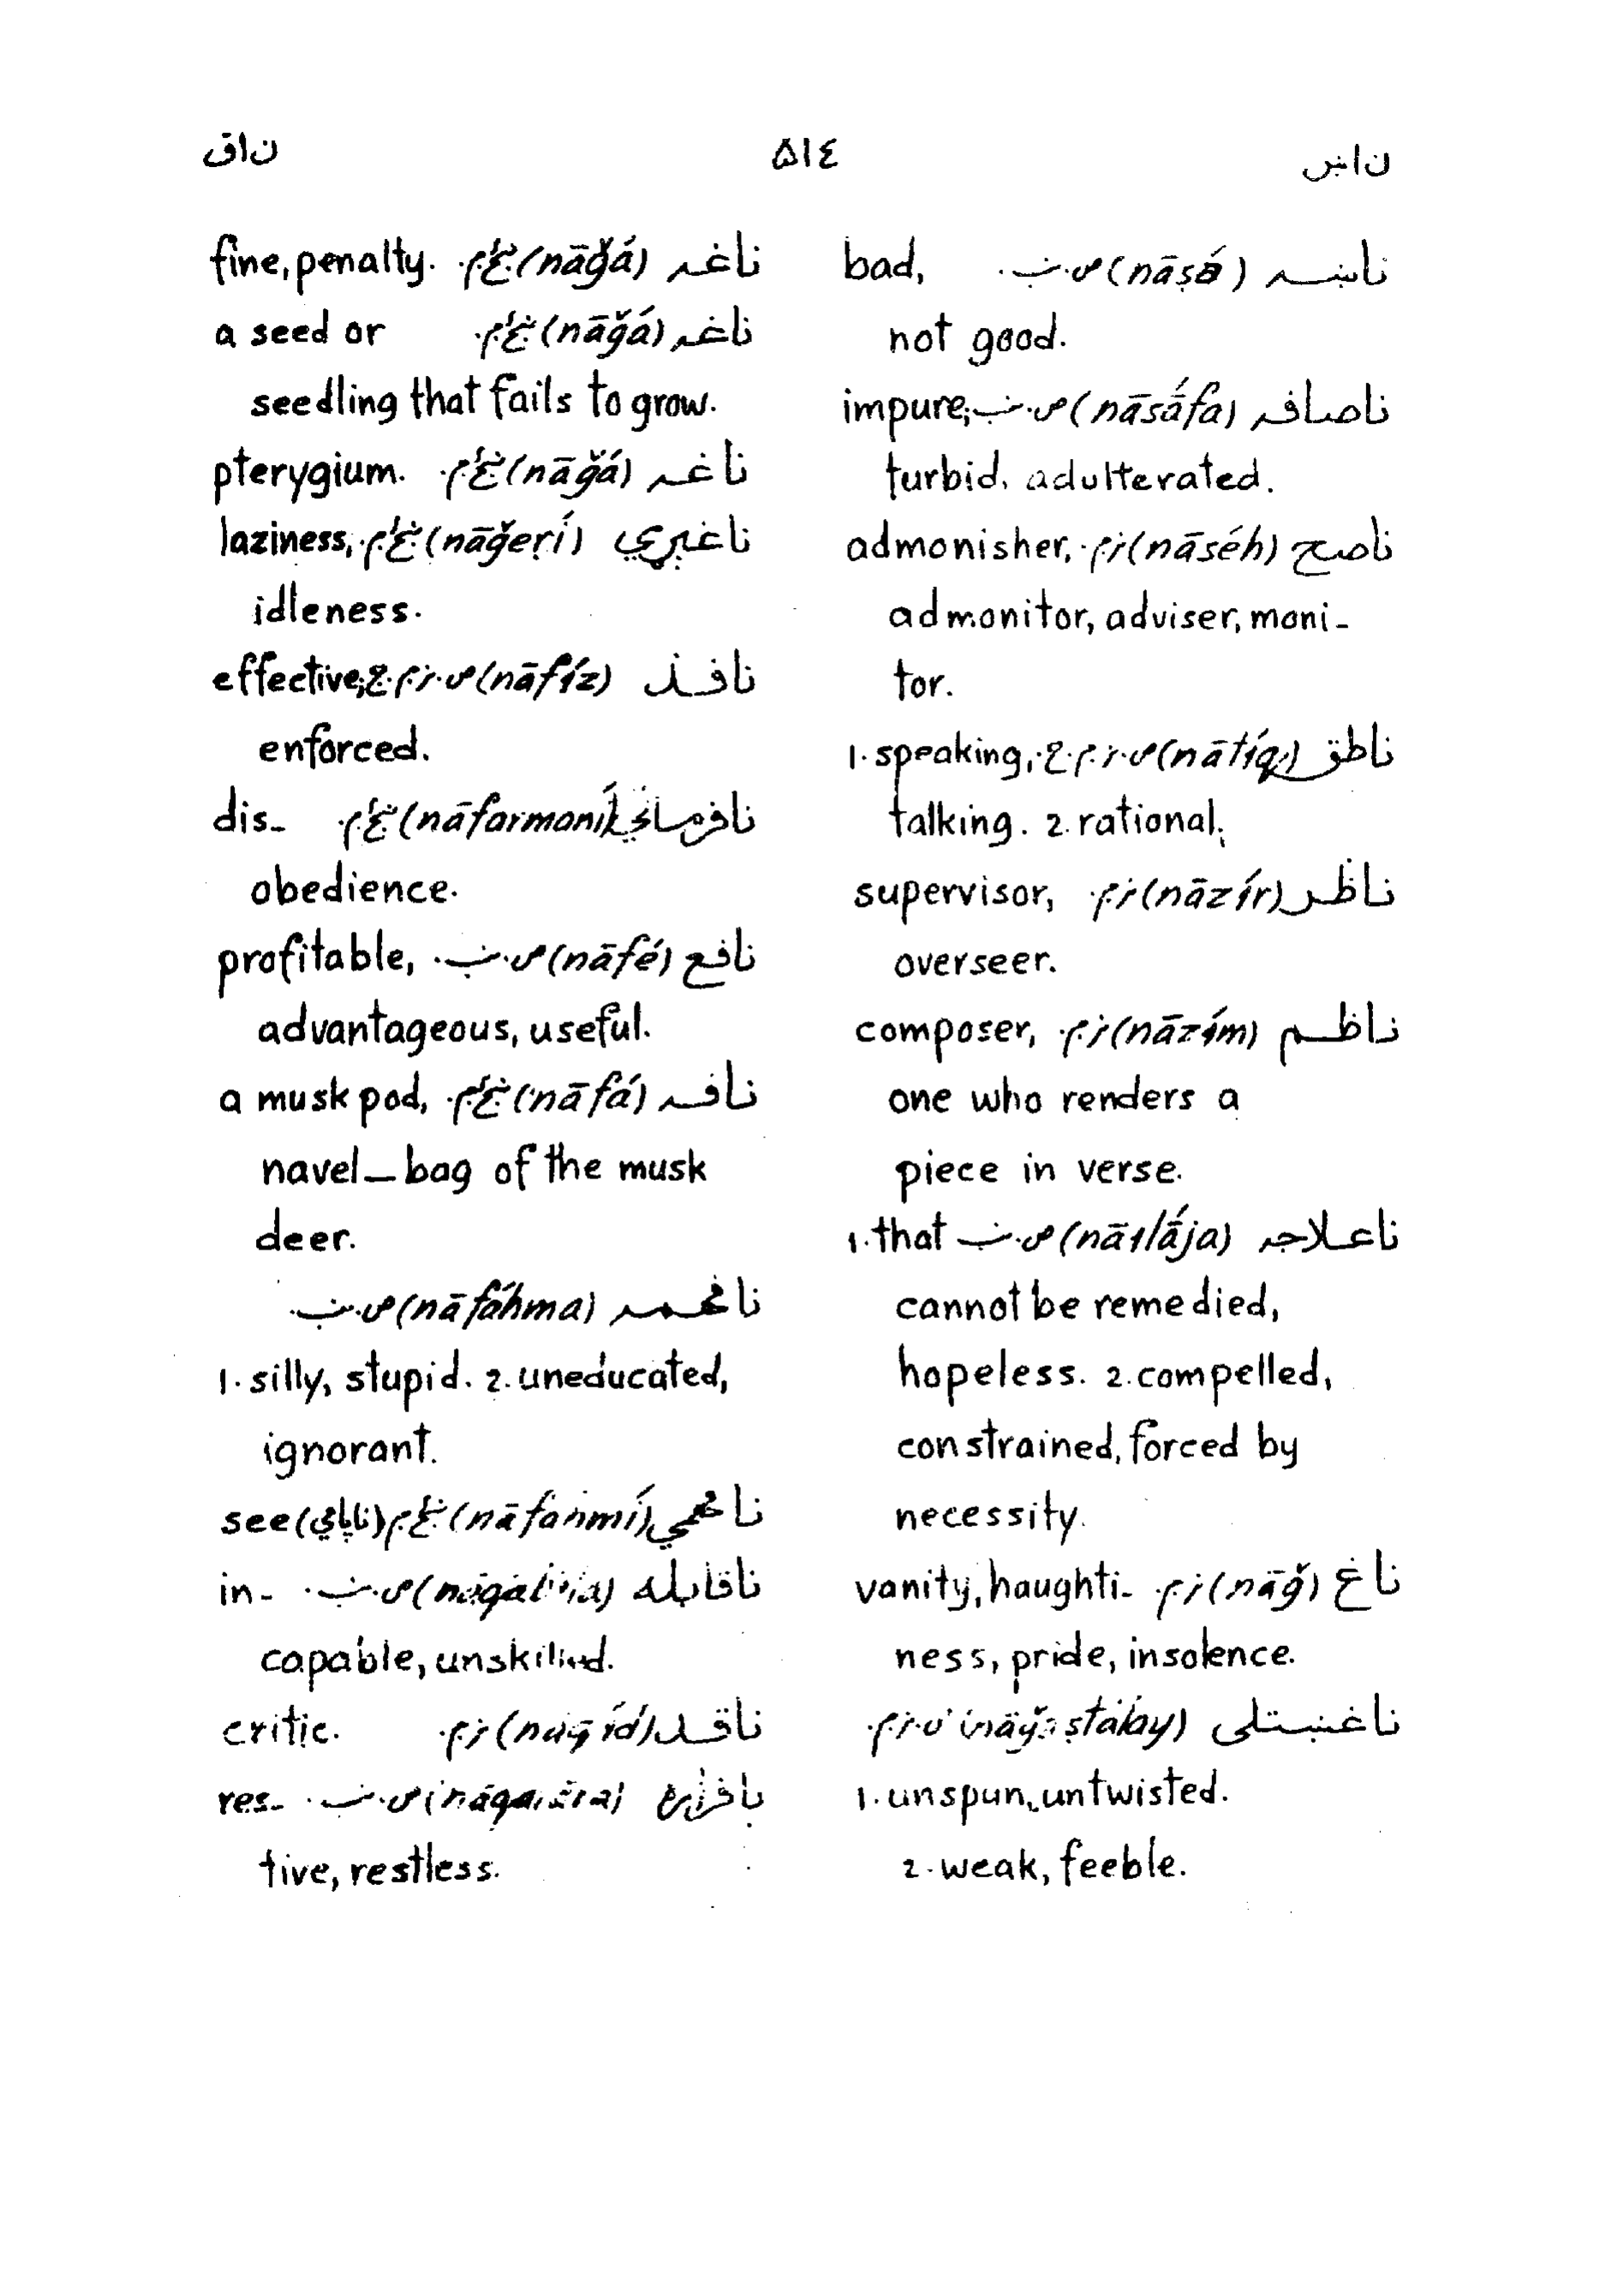 ناښ ۵۱٤ ناق
ناښه (nāṣá) ص.ښ. bad,
not good.
ناصافه (nāsā́fa) ص.ښ. impure,
turbid, adulterated.
ناصح (nāséh) ن.م. admonisher,
admonitor, adviser, moni-
tor.
ناطق (nātíq) ص.ن.م.ع. 1. speaking,
talking. 2. rational.
ناظر (nāzír) ن.م. supervisor,
overseer.
ناظم (nāzím) ن.م. composer,
one who renders a
piece in verse.
ناعلاجه (nāɪlā́ja) ص.ښ. 1. that
cannot be remedied,
hopeless. 2. compelled,
constrained, forced by
necessity.
ناغ (nāğ) ن.م. vanity, haughti-
ness, pride, insolence.
ناغښتلی ص.ن.م.
1. unspun, untwisted.
2. weak, feeble.
ناغه (nāğá) fine, penalty.
ناغه (nāğá) a seed or
seedling that fails to grow.
ناغه (nāğá) pterygium.
ناغېړي (nāğeṛí) laziness,
idleness.
نافذ (nāfíz) ص.ن.م.ع. effective,
enforced.
نافرماني (nāfarmaní) dis-
obedience.
نافع (nāfé) ص.ښ. profitable,
advantageous, useful.
نافه (nāfá) a musk pod,
navel-bag of the musk
deer.
نافهمه (nāfáhma) ص.ښ.
1. silly, stupid. 2. uneducated,
ignorant.
نافهمي (nāfahmí) see
ناقابله ص.ښ. in-
capable, unskilled.
ناقد (nāqíd) ن.م. critic.
ص.ښ. res-
tive, restless.